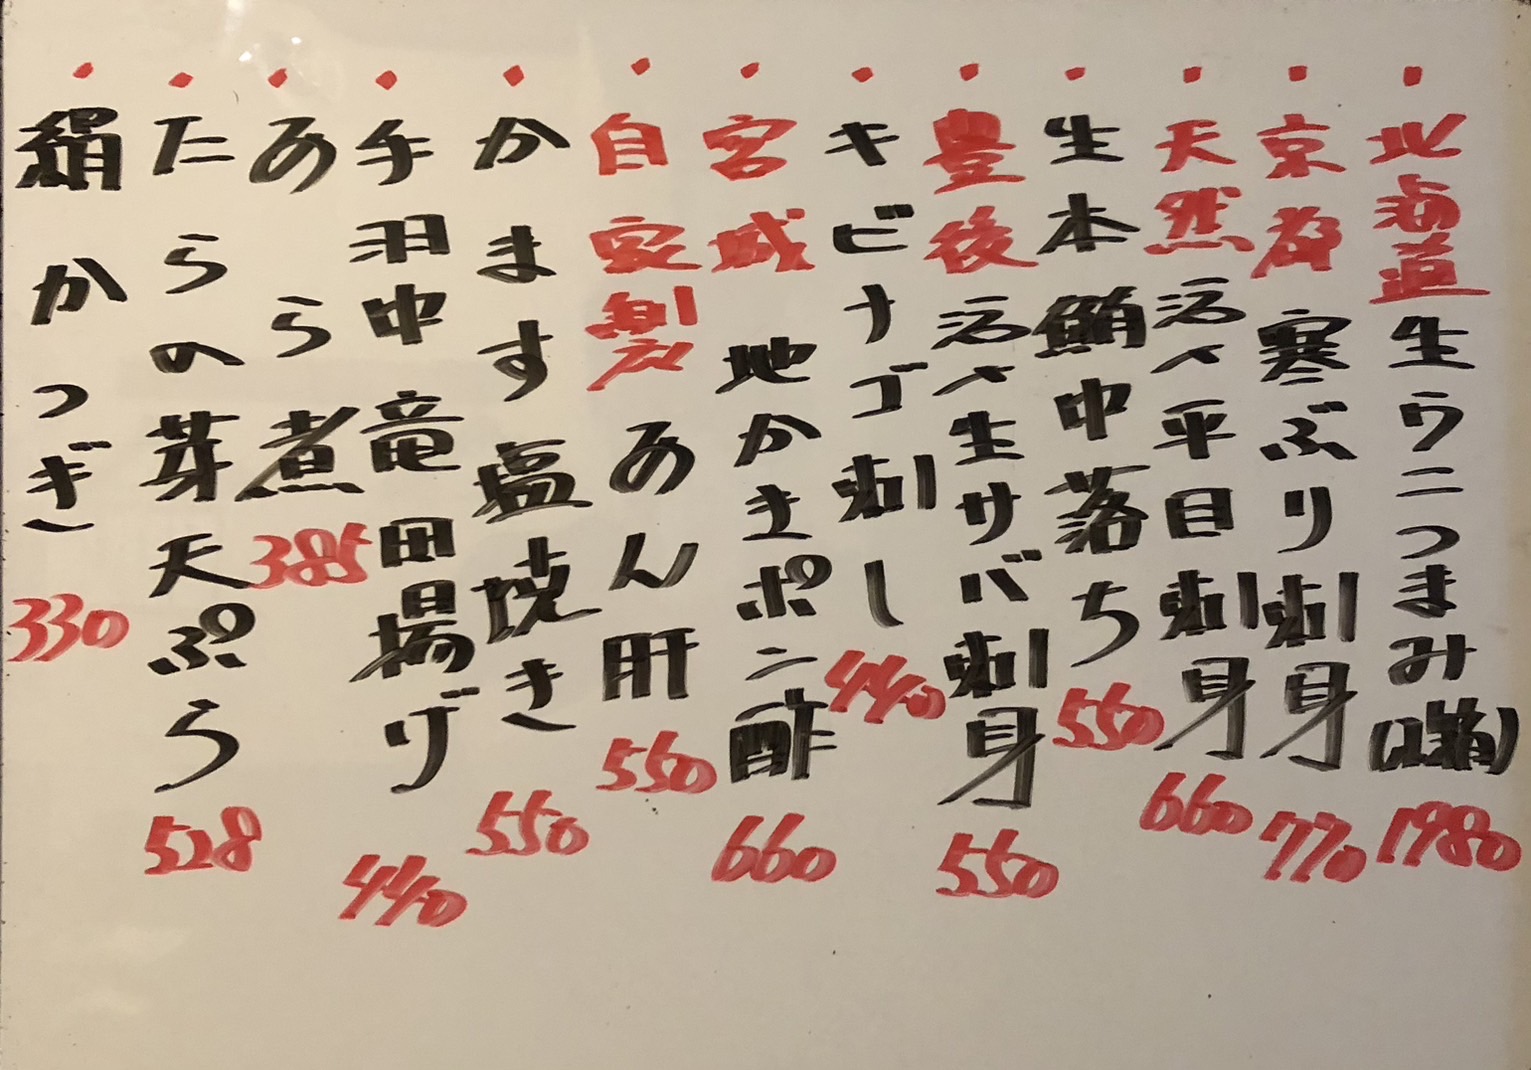 北海道生ウニつまみ(1箱)1980
京都寒ぶり刺身770
天然活〆平目刺身660
生本鮪中落ち550
豊後活〆生サバ刺身550
キビナゴ刺し440
宮城地かきポン酢660
自家製あん肝550
かます塩焼き550
手羽中竜田揚げ440
あら煮385
たらの芽天ぷら528
絹かつぎ330